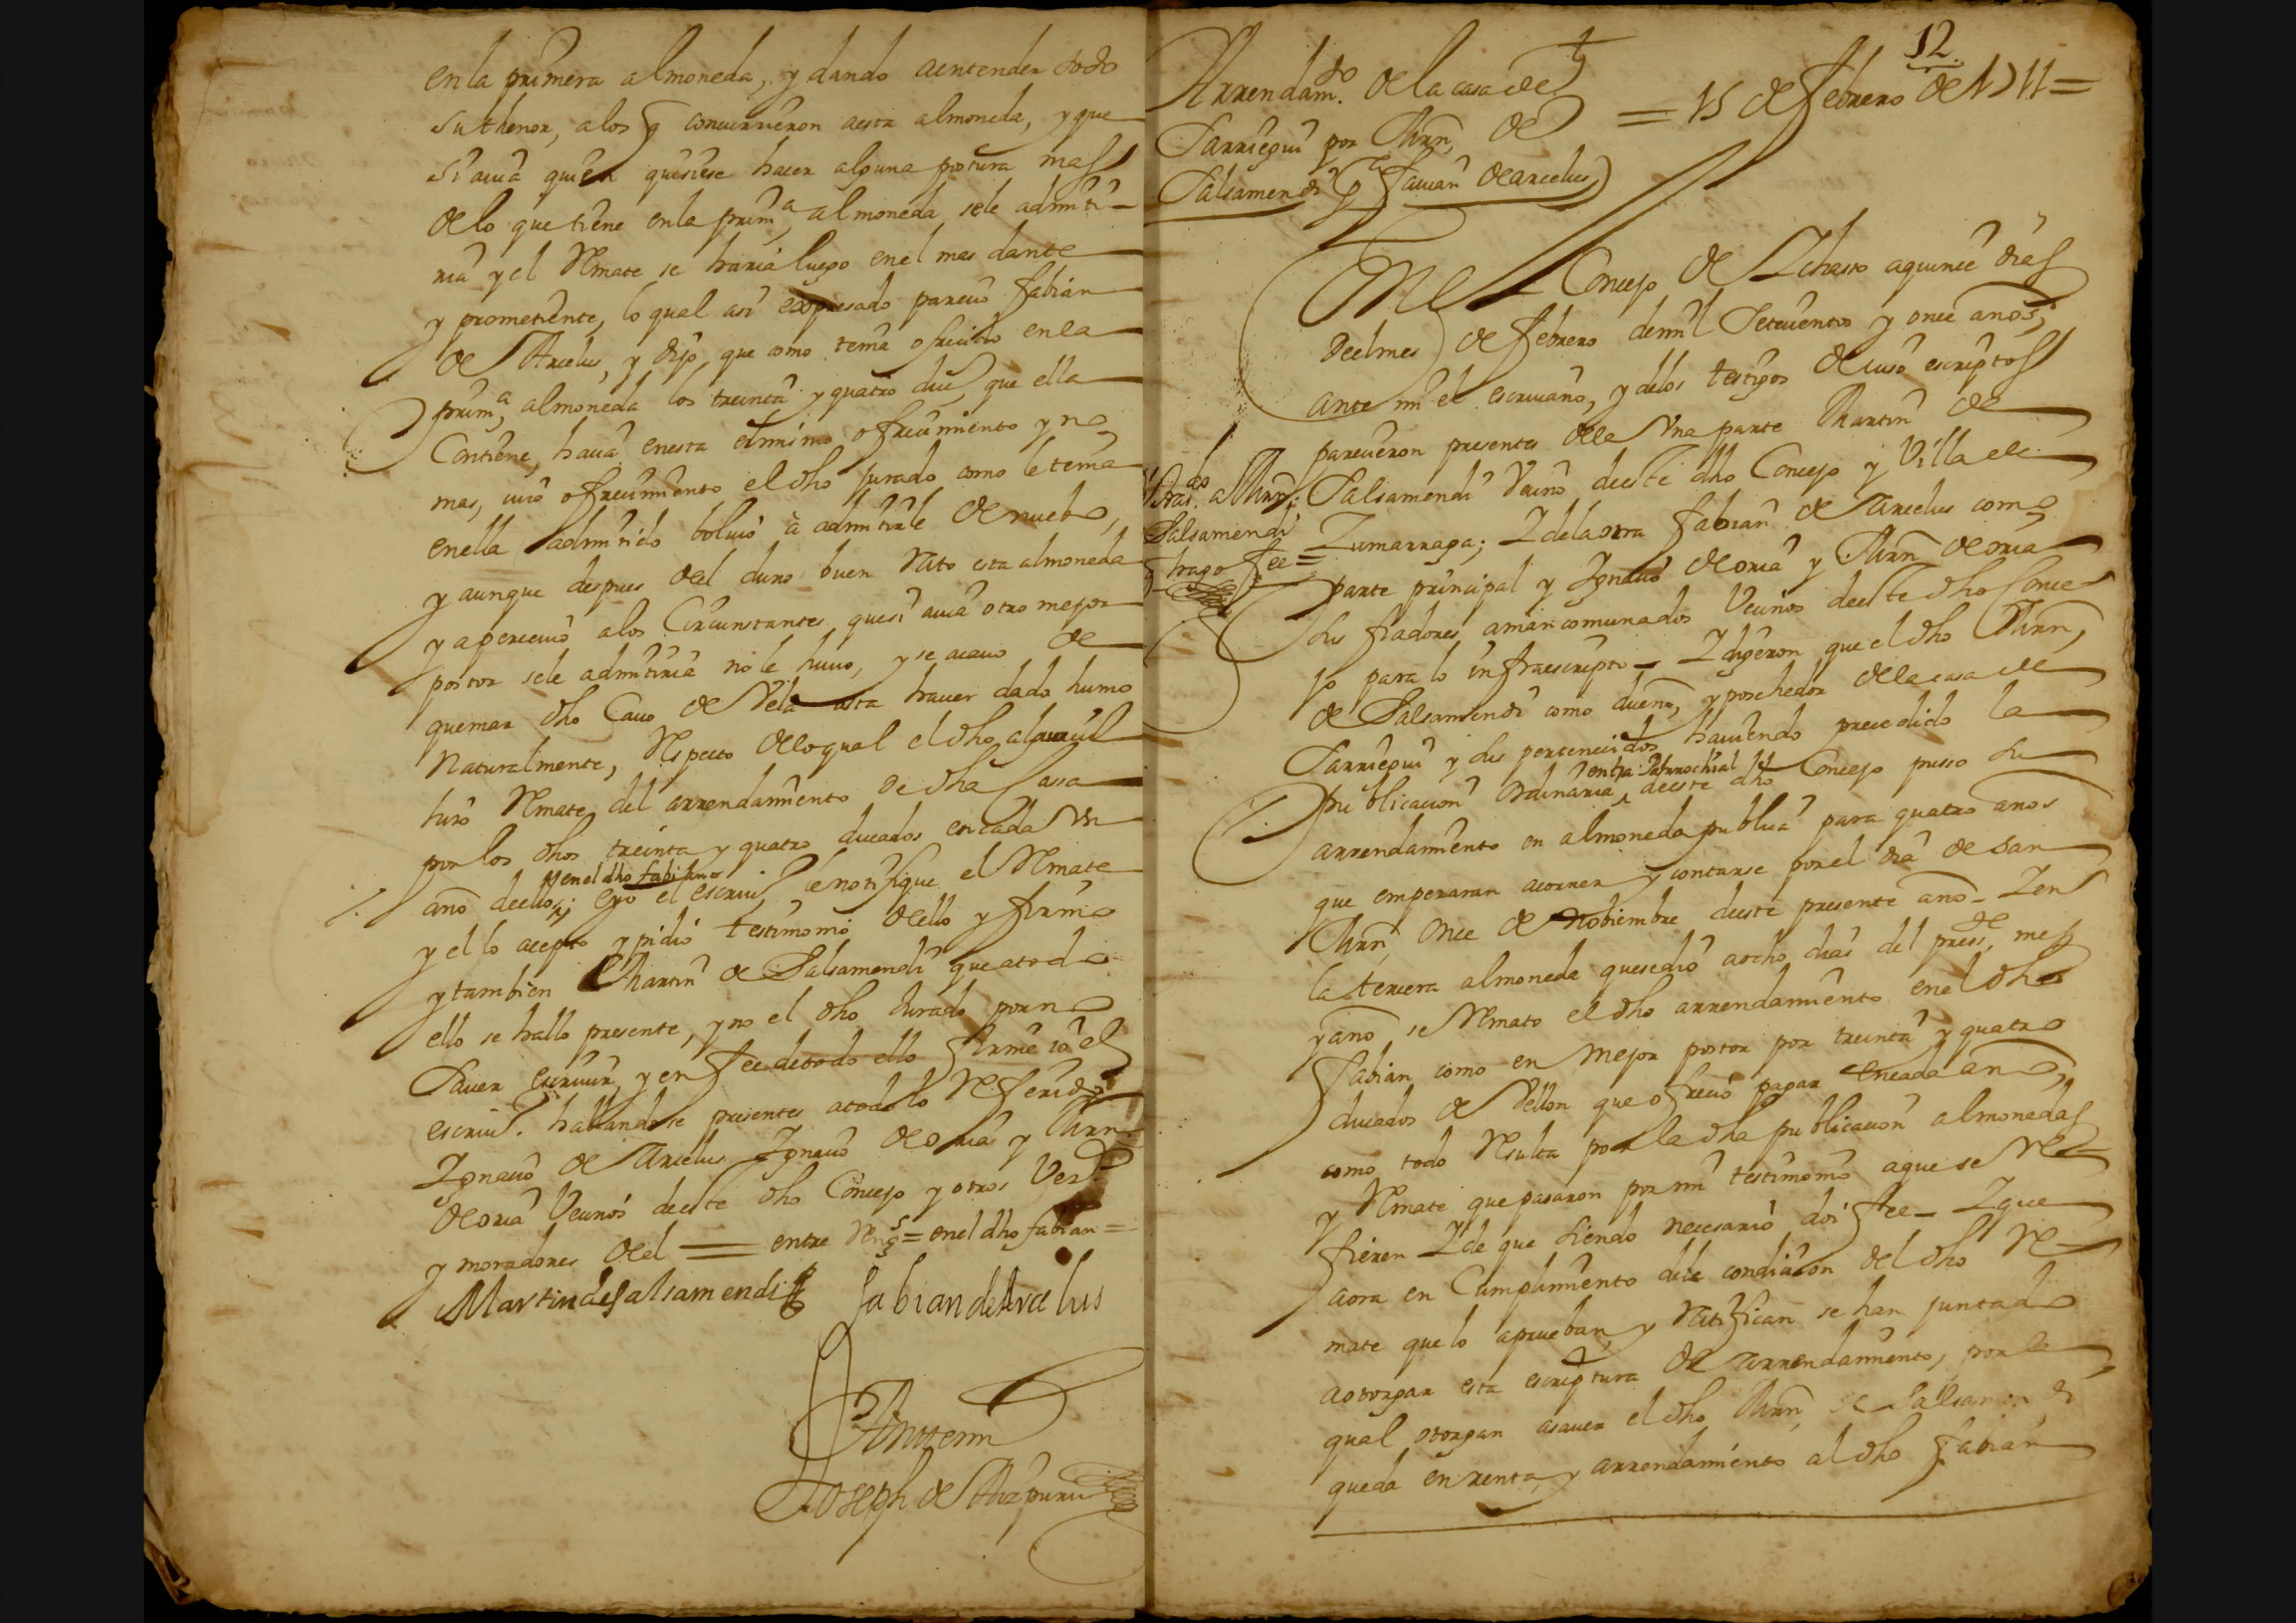 en la primera almoneda, y dando aentender todo
su thenor, alos q concurrieron aesta almoneda, y que
si auia quien quisiese hacer alguna postura mas
de lo que tiene en la prima almoneda sele admiti-
ria y el Remate se haria luego en el mas dante
y prometiente, lo qual asi expresado parecio fabian
de Arcelus, y dijo, que como tenia ofrecido en la
prima almoneda los treinta y quatro ducs que ella
Contiene, hacia en esta el mismo ofrecimiento y no
mas, cuio ofrecimiento el dho jurado como le tenia
en ella admitido boluio à admitirle de nuebo,
y aunque despues de el duro buen Rato esta almoneda
y apercieuio alos Circunstantes que si auia otro mejor
postor sele admitiria no le huuo, y se acauo de
quemar dho Cauo de Vela asta hauer dado humo
Naturalmente, Respecto de lo qual el dho alguacil
hizo Remate del arrendamiento de dha Cassa
por los dhos treinta y quatro ducados en cada Un
en el dho fabiano
año de ellos; e yo el escriuo le notifique el Remate
y el lo acepto y pidio testimonio de ello y firmo
y tambien Martin de Salsamendi que atodo
ello se hallo presente, y no el dho Jurado por no
Sauer escriuir, y en fee de todo ello firme io el
escriuo. hallandose presentes atodo lo Referido
Ignacio de Arcelus Ignacio de oria y Mrn
de oria Vecinos de este dho Concejo y otros Vezos
y moradores de el = entre Rengs = en el dho fabian =
Martin de Salsamendi fabian de Arcelus
Ante mi
Joseph de Aizpuru
12
Arrendamto de la casa de
Sarriegui por Mrn, de
Salsamendi a fauian de arcelus
= 15 de febrero de 1711 =
En el Concejo de Ichaso aquince dias
de el mes de febrero de mil Setecientos y once años;
ante mi el escriuano, y de los testigos de iuso escriptos
parecieron presentes de la Una parte Martin de
Salsamendi Vecino de este dho Concejo y Villa de
Zumarraga; I de la otra fabian de Arcelus como
parte principal y Ignacio de oria y Mrn de oria
sus fiadores amancomunados Vecinos de este dho Conce-
jo para lo infraescripto - I dijeron que el dho Mrn,
de Salsamendi como dueño, y posehedor de la casa de
Sarriegui y sus pertenecidos hauiendo precedido la
en la Parrochial del
publicacion ordinaria de este dho Concejo pusso su
arrendamiento en almoneda publica para quatro años
que empezaran acorrer y contarse por el dia de san
Mrn, once de Nobiembre de este presente año - I en
la tercera almoneda que se dio aocho dias del presste, mes
y año se Remato el dho arrendamiento en el dho
fabian como en mejor postor por treinta y quatro
ducados de Vellon que ofrecio pagar en cada año,
como todo Resulta por la dha publicacion almonedas
y Remate que pasaron por mi testimonio a que se Re-
fieren I de que siendo necesario doi fee - I que
aora en Cumplimiento de la condicion del dho Re-
mate que lo aprueban, y Ratifican se han juntado
aotorgar esta escriptura de Arrendamiento, por la
qual otorgan asauer el dho Mrn, de Salsamendi
que da en renta, y arrendamiento al dho fabian
Salsamendi
hago fee =